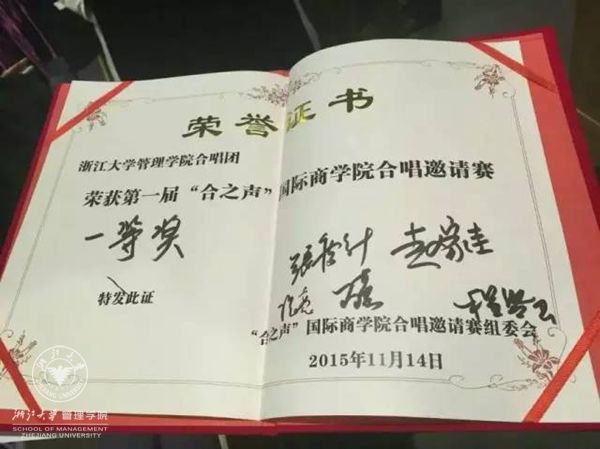 荣誉证书
浙江大学管理学院合唱团
荣获第一届“合之声”国际商学院合唱邀请赛
一等奖
特发此证
赵家圭
“合之声”国际商学院合唱邀请赛组委会
2015年11月14日
浙江大学管理学院
SCHOOL OF MANAGEMENT
ZHEJIANG UNIVERSITY